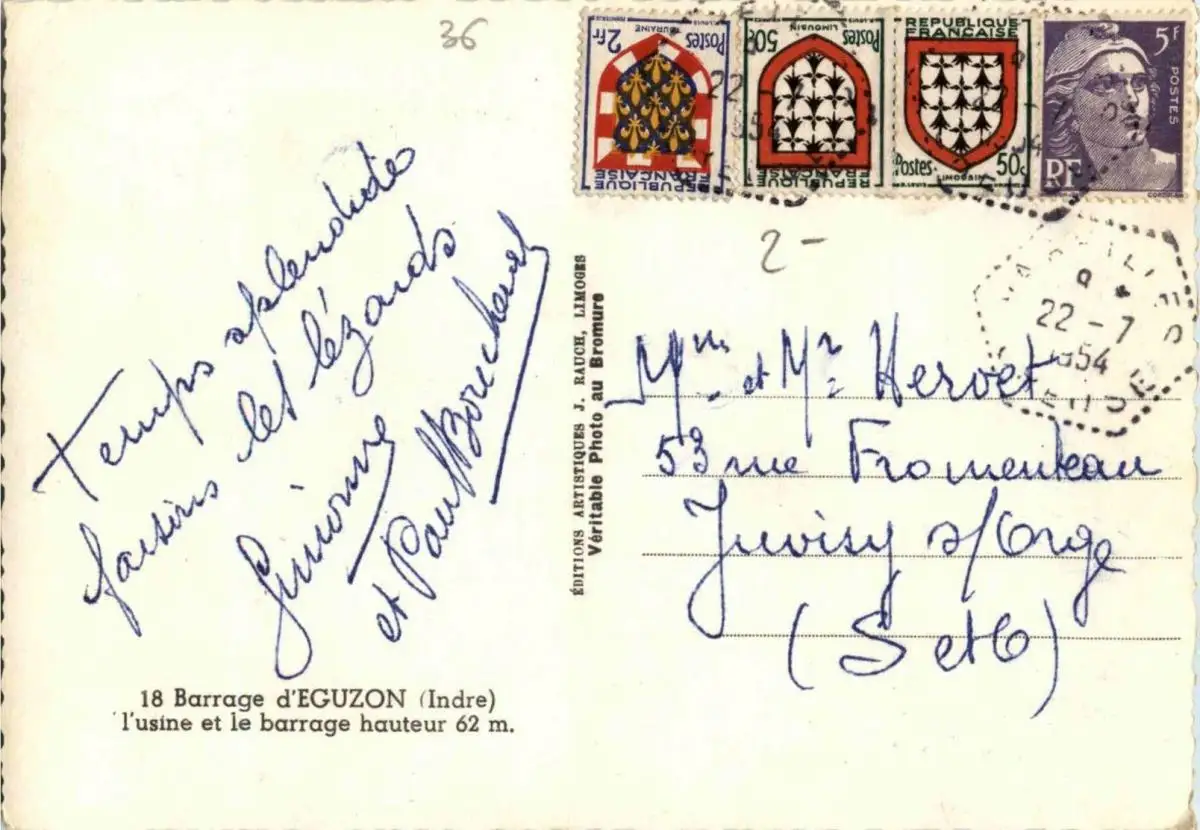 36
2fr Postes
TOURAINE
REPUBLIQUE
FRANÇAISE
50c Postes
LIMOUSIN
REPUBLIQUE
FRANÇAISE
REPUBLIQUE
FRANÇAISE
Postes 50c
LIMOUSIN
5F
POSTES
RF
2-
22 - 7
1954
Temps splendide
faisons les lézards
Simonne
et Paul Bouchard
ÉDITIONS ARTISTIQUES J. RAUCH, LIMOGES
Véritable Photo au Bromure
Mme et Mr Hervet
53 rue Fromenteau
Juvisy s/Orge
(S et O)
18 Barrage d'EGUZON (Indre)
l'usine et le barrage hauteur 62 m.